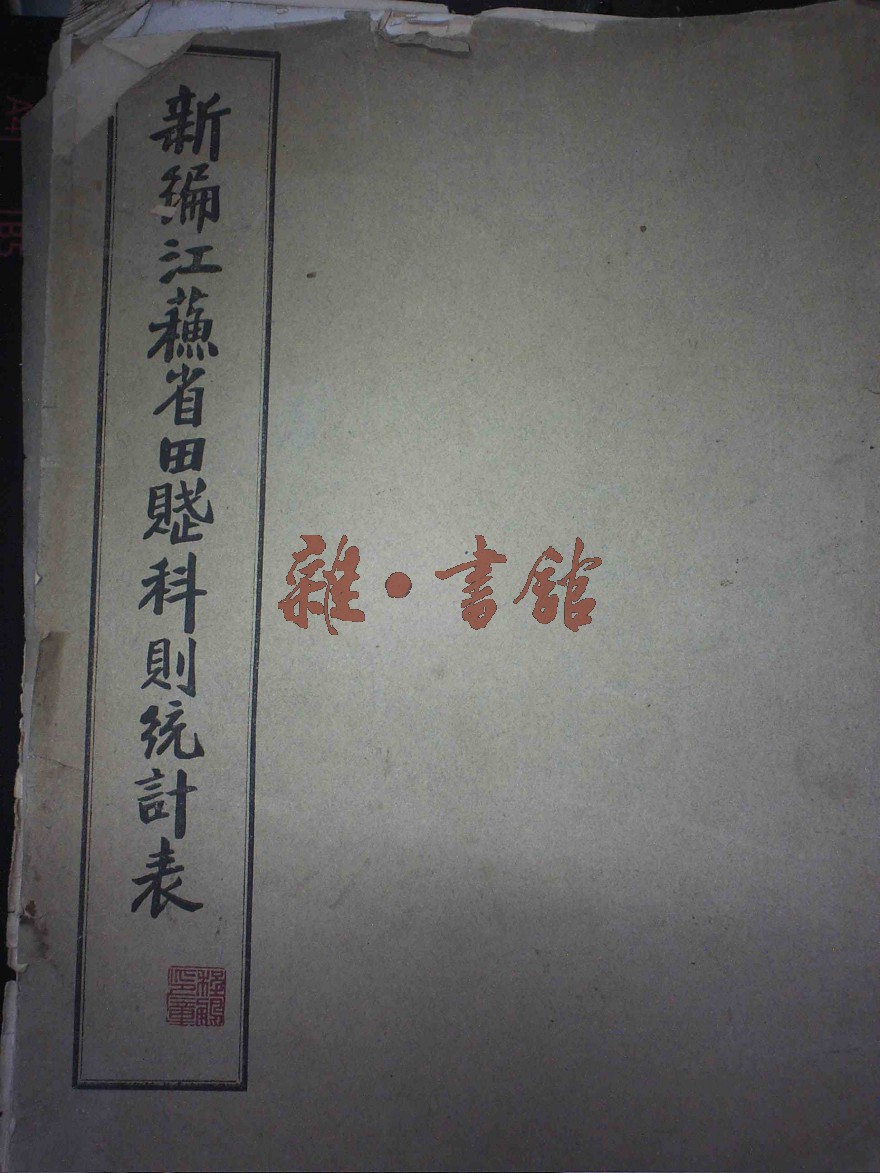 新編江蘇省田賦科則統計表
雜·書館